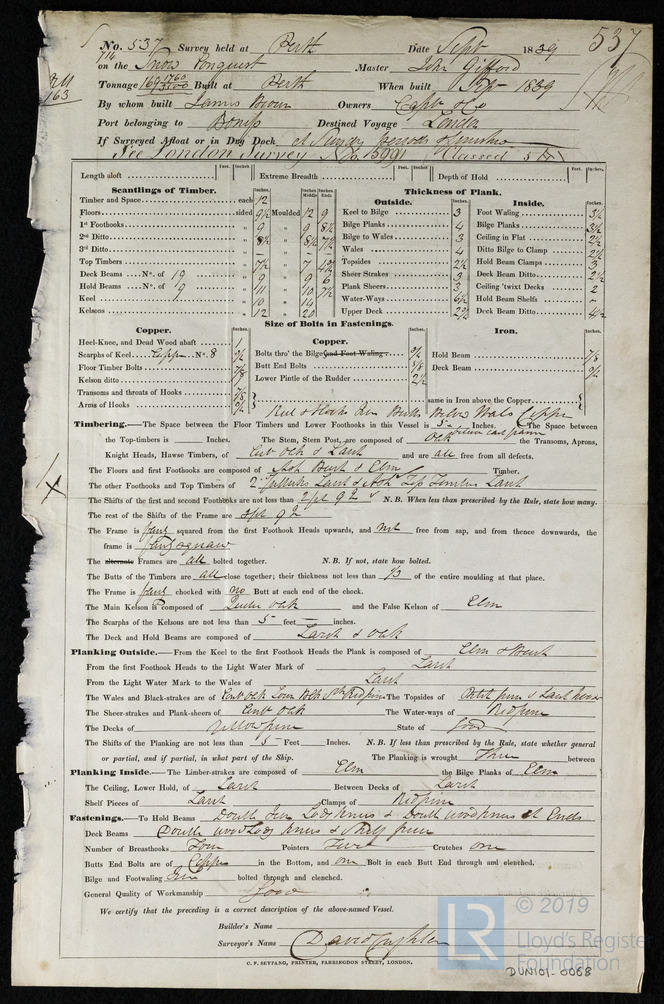 No. 537 Survey held at Perth Date Sept 1839 537
on the Snow Conquest Master John Gifford
Tonnage 169 1760/3500 Built at Perth When built Sept 1839
163
By whom built James Brown Owners Capt & Co
Port belonging to Boness Destined Voyage London
If Surveyed Afloat or in Dry Dock at Sundry periods
See London Survey No. Classed 5
Length aloft Feet. Inches. Extreme Breadth Feet. Inches. Depth of Hold Feet. Inches.
Scantlings of Timber. Thickness of Plank.
Inches. Inches. Middle Inches. Ends Outside. Inches. Inside. Inches.
Timber and Space each 12
Floors sided 9½ Moulded 12 9 Keel to Bilge 3 Foot Waling 3½
1st Foothooks " 9 " 9 8½ Bilge Planks 4 Bilge Planks 3½
2nd Ditto " 8½ " 8½ 7½ Bilge to Wales 3 Ceiling in Flat 2½
3rd Ditto " - " - - Wales 4 Ditto Bilge to Clamp 2½
Top Timbers " 7½ " 7 4½ Topsides 2½ Hold Beam Clamps 3
Deck Beams No. of 19 " 9 " 9 6 Sheer Strakes 3 Deck Beam Ditto 2½
Hold Beams No. of 9 " 11 " 10 7½ Plank Sheers 3 Ceiling 'twixt Decks 2
Keel " 10 " 14 Water-Ways 6½ Hold Beam Shelfs -
Kelsons " 12 " 20 Upper Deck 2½ Deck Beam Ditto 4½
Size of Bolts in Fastenings.
Copper. Inches. Copper. Inches. Iron. Inches.
Heel-Knee, and Dead Wood abaft 1
Scarphs of Keel Copper No. 8 Bolts thro' the Bilge and Foot Waling Hold Beam 7/8
Floor Timber Bolts 7/8 Butt End Bolts Deck Beam
Kelson ditto Lower Pintle of the Rudder 2½
Transoms and throats of Hooks 7/8
Arms of Hooks same in Iron above the Copper
Copper
Timbering.—The Space between the Floor Timbers and Lower Foothooks in this Vessel is 5 Inches. The Space between
the Top-timbers is Inches. The Stem, Stern Post, are composed of Oak the Transoms, Aprons,
Knight Heads, Hawse Timbers, of Oak & Larst and are all free from all defects.
The Floors and first Foothooks are composed of Ash Bursh & Elm Timber.
The other Foothooks and Top Timbers of Larst & Ash Top Timbers Larst
The Shifts of the first and second Foothooks are not less than N. B. When less than prescribed by the Rule, state how many.
The rest of the Shifts of the Frame are
The Frame is fairly squared from the first Foothook Heads upwards, and not free from sap, and from thence downwards, the
frame is
The alternate Frames are all bolted together. N. B. If not, state how bolted.
The Butts of the Timbers are all close together; their thickness not less than 1/3 of the entire moulding at that place.
The Frame is fairly chocked with no Butt at each end of the chock.
The Main Kelson is composed of Oak and the False Kelson of Elm
The Scarphs of the Kelsons are not less than 5 feet inches.
The Deck and Hold Beams are composed of Larst & Oak
Planking Outside.—From the Keel to the first Foothook Heads the Plank is composed of Elm & Bursh
From the first Foothook Heads to the Light Water Mark of Larst
From the Light Water Mark to the Wales of Larst
The Wales and Black-strakes are of Oak Redpine The Topsides of pine & Larst
The Sheer-strakes and Plank-sheers of Oak The Water-ways of Redpine
The Decks of Yellow pine State of Good
The Shifts of the Planking are not less than 5 Feet Inches. N. B. If less than prescribed by the Rule, state whether general
or partial, and if partial, in what part of the Ship. The Planking is wrought Three between
Planking Inside.—The Limber-strakes are composed of Elm the Bilge Planks of Elm
The Ceiling, Lower Hold, of Larst Between Decks of Larst
Shelf Pieces of Larst Clamps of Redpine
Fastenings.—To Hold Beams Double Iron Lodg Knees & Double wood knees at Ends
Deck Beams Double wood Lodg Knees & Shelf piece
Number of Breasthooks Four Pointers Crutches one
Butts End Bolts are of Copper in the Bottom, and one Bolt in each Butt End through and clenched.
Bilge and Footwaling Iron bolted through and clenched.
General Quality of Workmanship Good
We certify that the preceding is a correct description of the above-named Vessel.
Builder's Name
Surveyor's Name David
C. F. SEYFANG, PRINTER, FARRINGDON STREET, LONDON.
LR © 2019
Lloyd's Register
Foundation
DUN101-0068